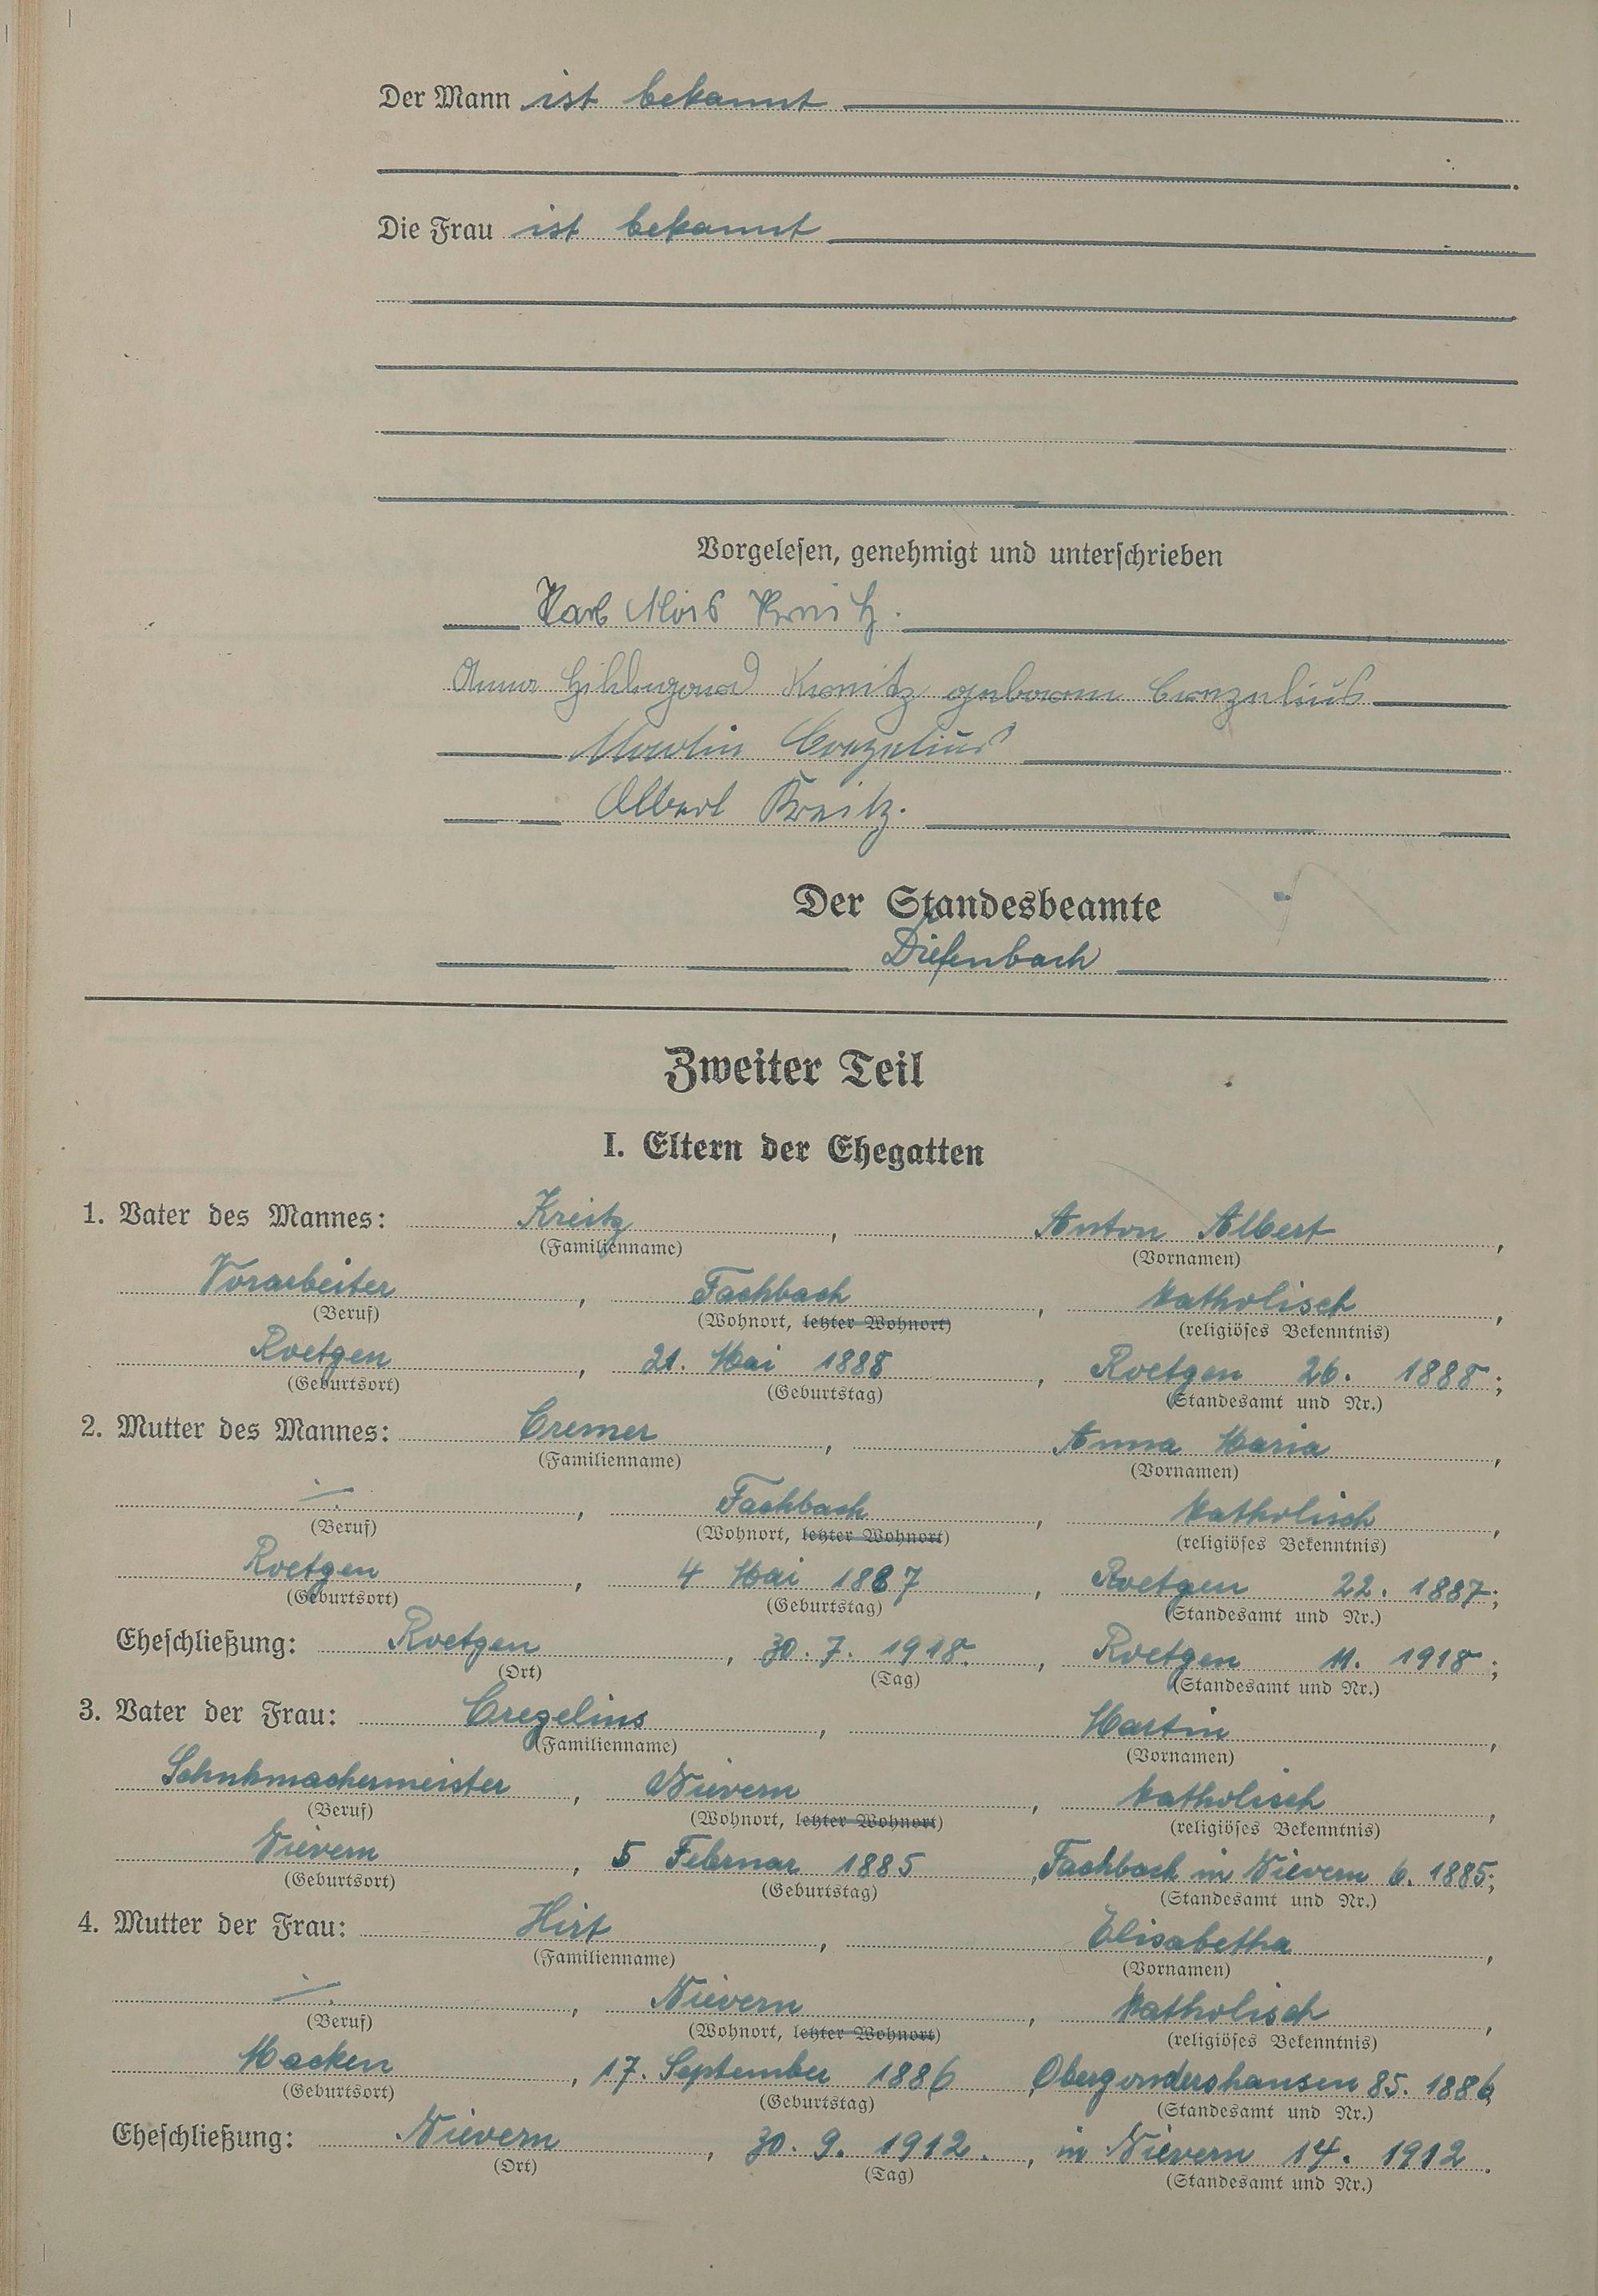 Der Mann ist bekannt
Die Frau ist bekannt
Vorgelesen, genehmigt und unterschrieben
Karl Alois Kreitz.
Anna Hildegard Kreitz geborene Crezelius
Martin Crezelius
Albert Kreitz.
Der Standesbeamte
Diefenbach
Zweiter Teil
I. Eltern der Ehegatten
1. Vater des Mannes: Kreitz, Anton Albert,
(Familienname) (Vornamen)
Vorarbeiter, Fachbach, katholisch,
(Beruf) (Wohnort, letzter Wohnort) (religiöses Bekenntnis)
Roetgen, 21. Mai 1888, Roetgen 26. 1888;
(Geburtsort) (Geburtstag) (Standesamt und Nr.)
2. Mutter des Mannes: Cremer, Anna Maria,
(Familienname) (Vornamen)
—., Fachbach, katholisch,
(Beruf) (Wohnort, letzter Wohnort) (religiöses Bekenntnis)
Roetgen, 4 Mai 1887, Roetgen 22. 1887;
(Geburtsort) (Geburtstag) (Standesamt und Nr.)
Eheschließung: Roetgen, 30. 7. 1918., Roetgen 11. 1918;
(Ort) (Tag) (Standesamt und Nr.)
3. Vater der Frau: Crezelius, Martin,
(Familienname) (Vornamen)
Schuhmachermeister, Nievern, katholisch,
(Beruf) (Wohnort, letzter Wohnort) (religiöses Bekenntnis)
Nievern, 5 Februar 1885, Fachbach in Nievern 6. 1885;
(Geburtsort) (Geburtstag) (Standesamt und Nr.)
4. Mutter der Frau: Hirt, Elisabetha,
(Familienname) (Vornamen)
—., Nievern, katholisch,
(Beruf) (Wohnort, letzter Wohnort) (religiöses Bekenntnis)
Macken, 17. September 1886, Obergondershausen 85. 1886;
(Geburtsort) (Geburtstag) (Standesamt und Nr.)
Eheschließung: Nievern, 30. 9. 1912., in Nievern 14. 1912.
(Ort) (Tag) (Standesamt und Nr.)